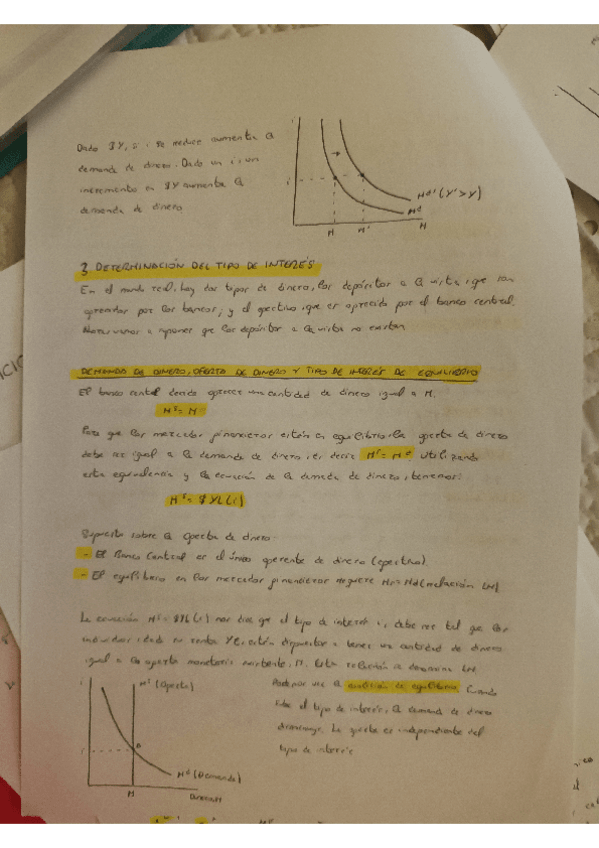 Dado $Y, si i se reduce aumenta la
demanda de dinero. Dado un i, un
incremento en $Y aumenta la
demanda de dinero
i
Md' (Y'>Y)
Md
M M' M
3. DETERMINACIÓN DEL TIPO DE INTERÉS
En el mundo real, hay dos tipos de dinero, los depósitos a la vista, que son
ofrecidos por los bancos, y el efectivo, que es ofrecido por el banco central.
Ahora vamos a suponer que los depósitos a la vista no existen
DEMANDA DE DINERO, OFERTA DE DINERO Y TIPO DE INTERÉS DE EQUILIBRIO
El banco central decide ofrecer una cantidad de dinero igual a M.
Ms = M
Para que los mercados financieros estén en equilibrio la oferta de dinero
debe ser igual a la demanda de dinero, es decir Ms = Md Utilizando
esta equivalencia y la ecuación de la demanda de dinero, tenemos:
Ms = $YL(i)
Supuestos sobre la oferta de dinero:
- El Banco Central es el único oferente de dinero (efectivo).
- El equilibrio en los mercados financieros requiere Ms=Md (relación LM)
La ecuación Ms = $YL(i) nos dice que el tipo de interés i, debe ser tal que los
individuos, dada su renta Y€, estén dispuestos a tener una cantidad de dinero
igual a la oferta monetaria existente, M. Esta relación se denomina LM.
i
Ms (Oferta)
i
A
Md (Demanda)
M
Podemos ver la condición de equilibrio. Cuando
sube el tipo de interés, la demanda de dinero
disminuye. La oferta es independiente del
tipo de interés